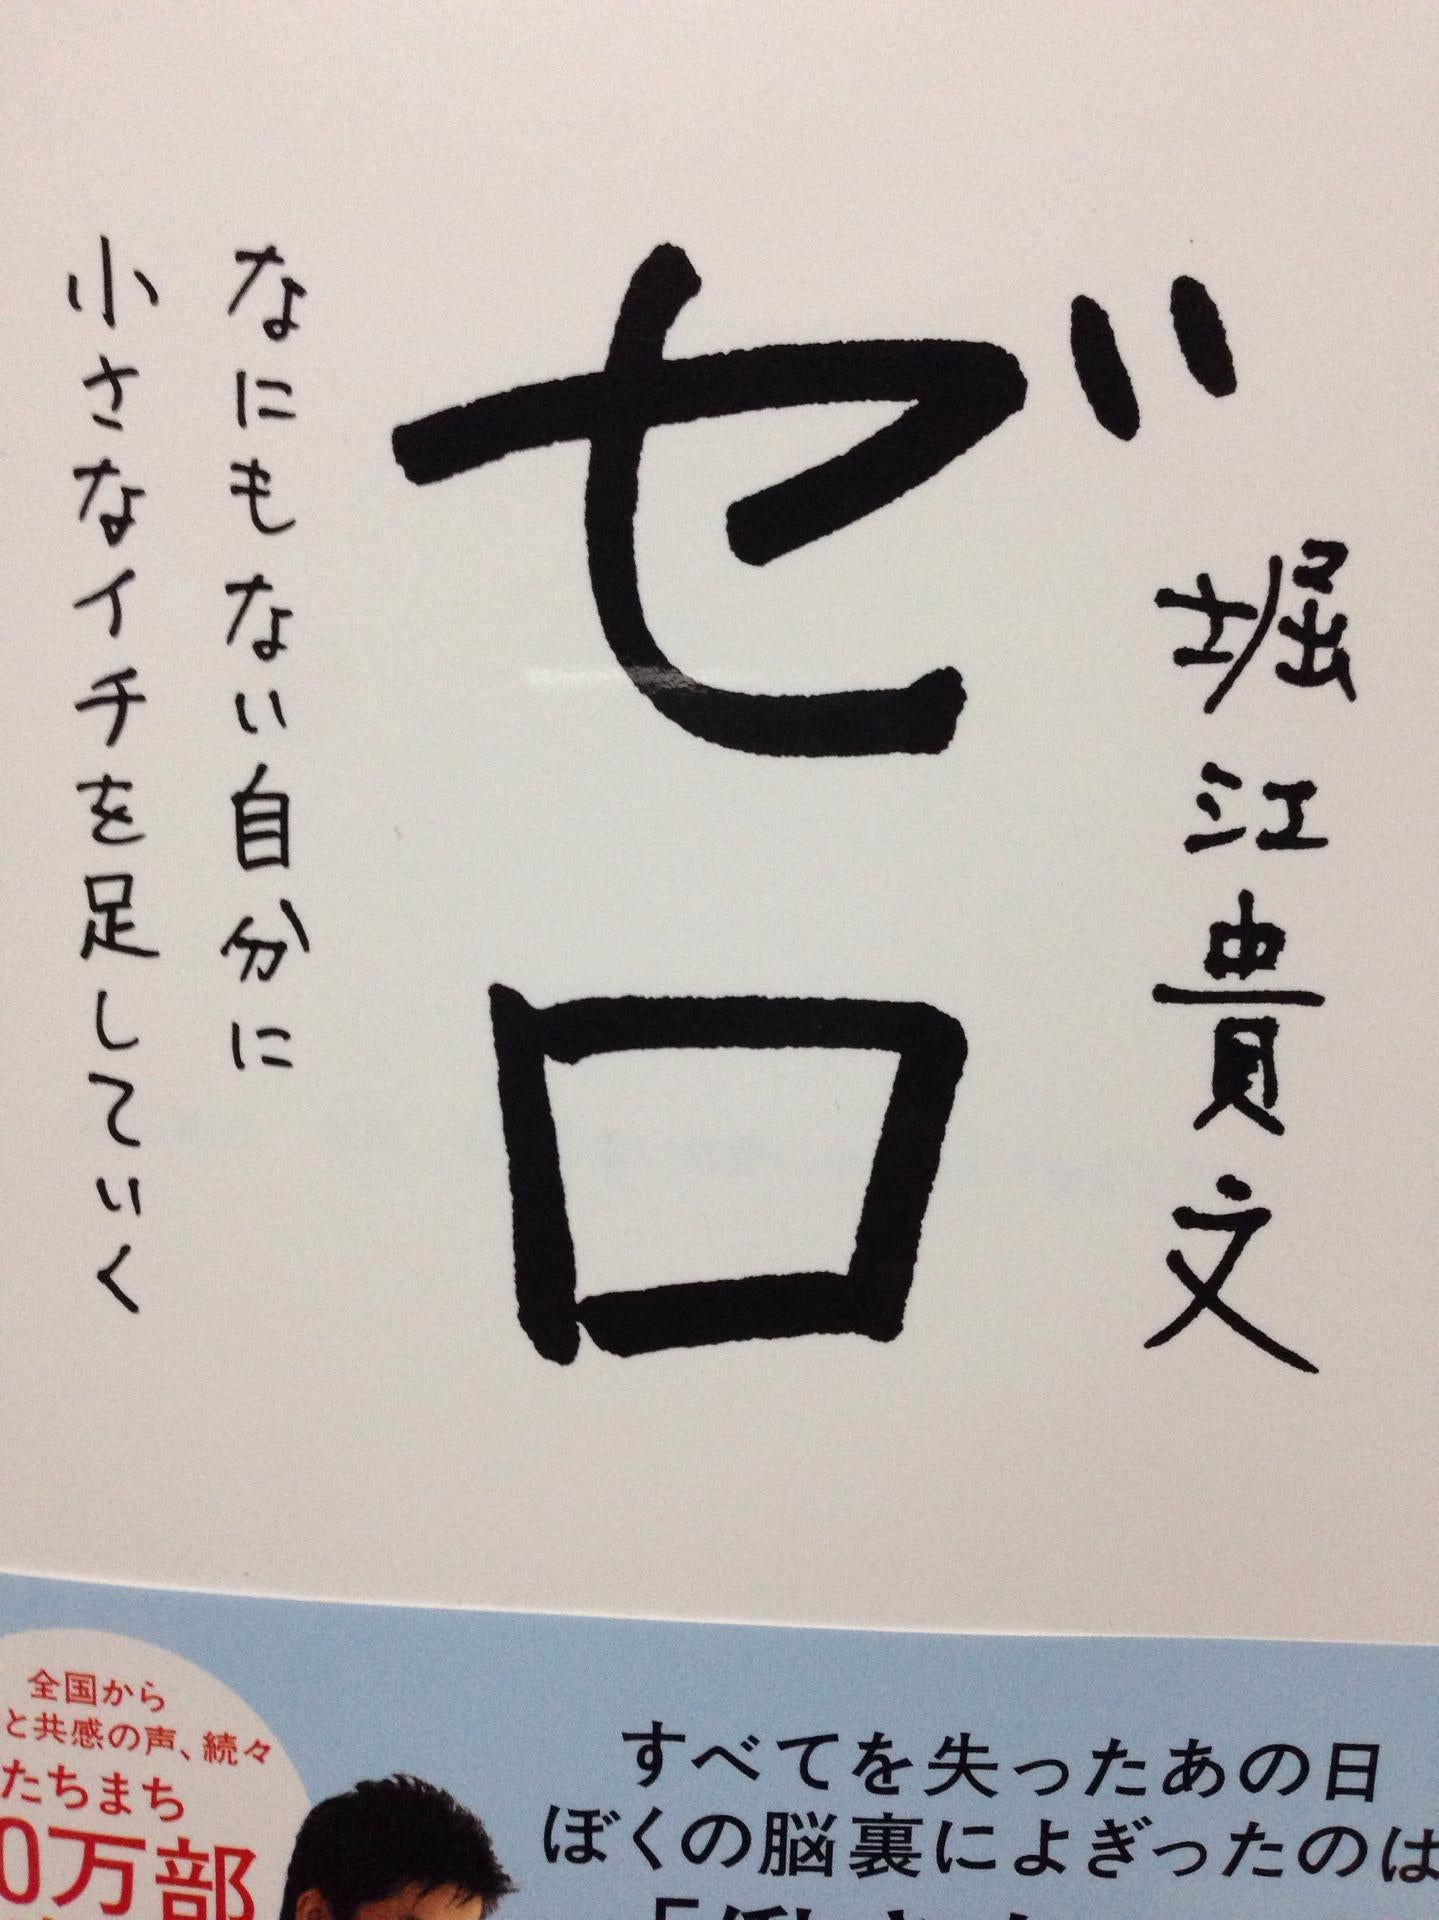 堀江貴文
ゼロ
なにもない自分に
小さなイチを足していく
全国から
と共感の声、続々
たちまち
0万部
すべてを失ったあの日
ぼくの脳裏によぎったのは